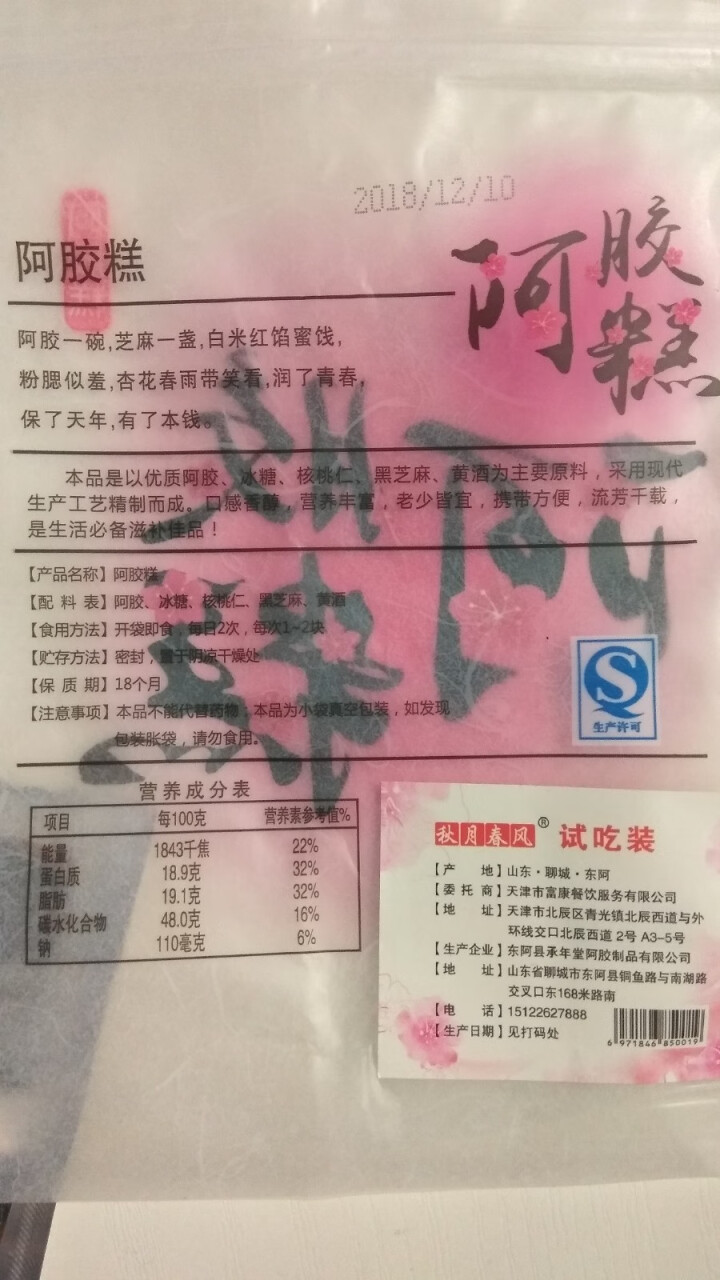 2018/12/10
阿胶糕
阿胶糕
阿胶一碗,芝麻一盏,白米红馅蜜饯,
粉腮似羞,杏花春雨带笑看,润了青春,
保了天年,有了本钱。
本品是以优质阿胶、冰糖、核桃仁、黑芝麻、黄酒为主要原料，采用现代
生产工艺精制而成。口感香醇，营养丰富，老少皆宜，携带方便，流芳千载，
是生活必备滋补佳品！
【产品名称】阿胶糕
【配 料 表】阿胶、冰糖、核桃仁、黑芝麻、黄酒
【食用方法】开袋即食，每日2次，每次1-2块
【贮存方法】密封，置于阴凉干燥处
【保 质 期】18个月
【注意事项】本品不能代替药物；本品为小袋真空包装，如发现
包装胀袋，请勿食用。
生产许可
营养成分表
项目 每100克 营养素参考值%
能量 1843千焦 22%
蛋白质 18.9克 32%
脂肪 19.1克 32%
碳水化合物 48.0克 16%
钠 110毫克 6%
秋月春风® 试吃装
【产 地】山东·聊城·东阿
【委 托 商】天津市富康餐饮服务有限公司
【地 址】天津市北辰区青光镇北辰西道与外
环线交口北辰西道 2号 A3-5号
【生产企业】东阿县承年堂阿胶制品有限公司
【地 址】山东省聊城市东阿县铜鱼路与南湖路
交叉口东168米路南
【电 话】15122627888
【生产日期】见打码处
6 971846 850019